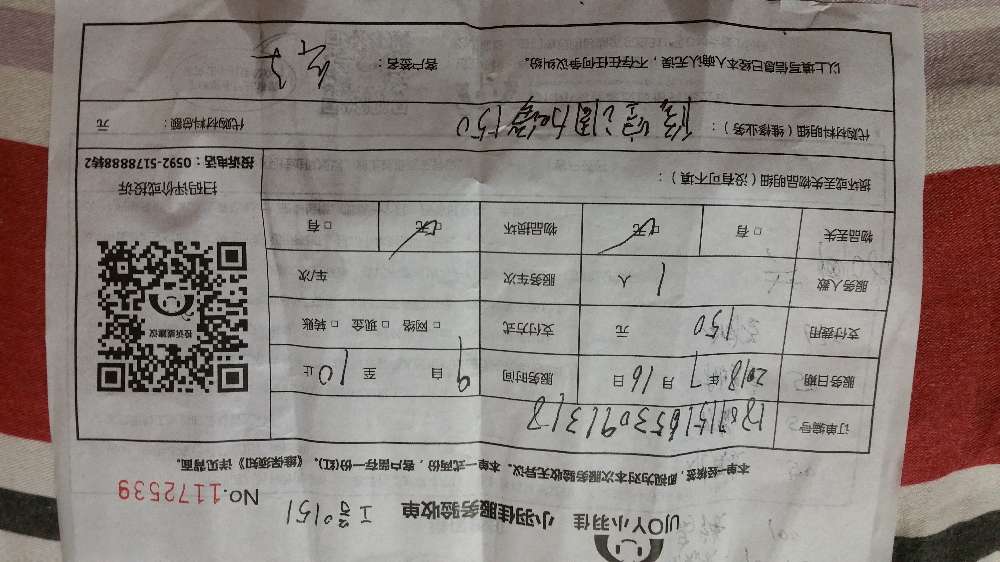 UJOY小羽佳 小羽佳服务验收单 工号0151
No.1172539
本单一经核签，即视为对本次服务验收无异议。本单一式两份，客户留存一份(红)。《维保须知》详见背面。
订单编号
服务日期 2018年7月16日 服务时间 9自 至10止
支付费用 150元 支付方式 □网络 □现金 □转账
服务人数 1人 服务车次 车/次
物品丢失 □有 □无 物品损坏 □无 □有
投诉或建议
扫码评价或投诉
投诉电话：0592-5178888转2
损坏或丢失物品明细（没有可不填）：
代购材料明细（维修业务）： 150
代购材料总额： 元
以上填写信息已经本人确认无误，不存在任何争议纠纷。 客户签名：